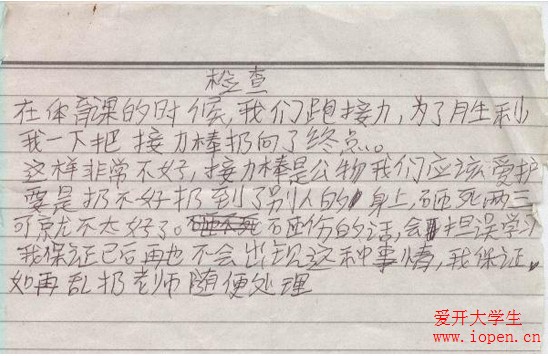 检查
在体育课的时候,我们跑接力,为了月生利
我一下把接力棒扔向了终点。
这样非常不好,接力棒是公物我们应该爱护
要是扔不好扔到了别人的身上,砸死两三
可就不太好了。砸伤的话,会担误学习
我保证已后再也不会出现这种事情,我保证
如再乱扔老师随便处理
爱开大学生
www.iopen.cn